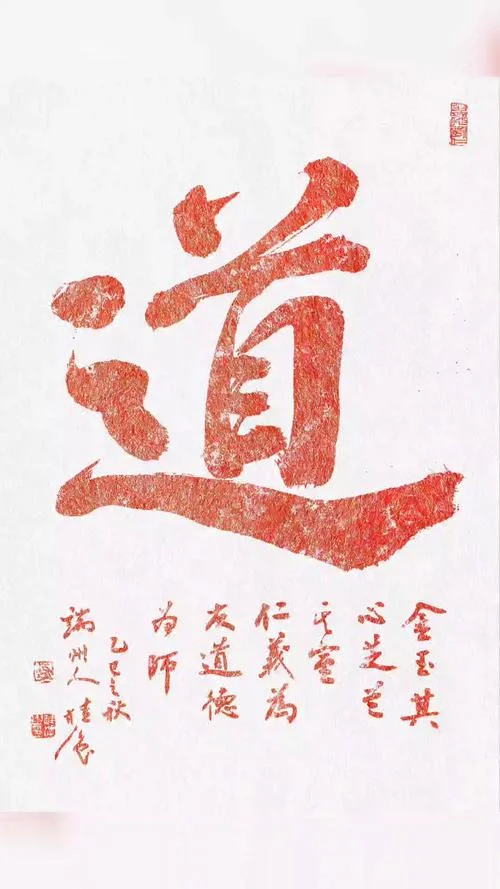 道
金玉其
心芝兰
其室
仁義為
友道德
为師
乙巳之秋
端州人